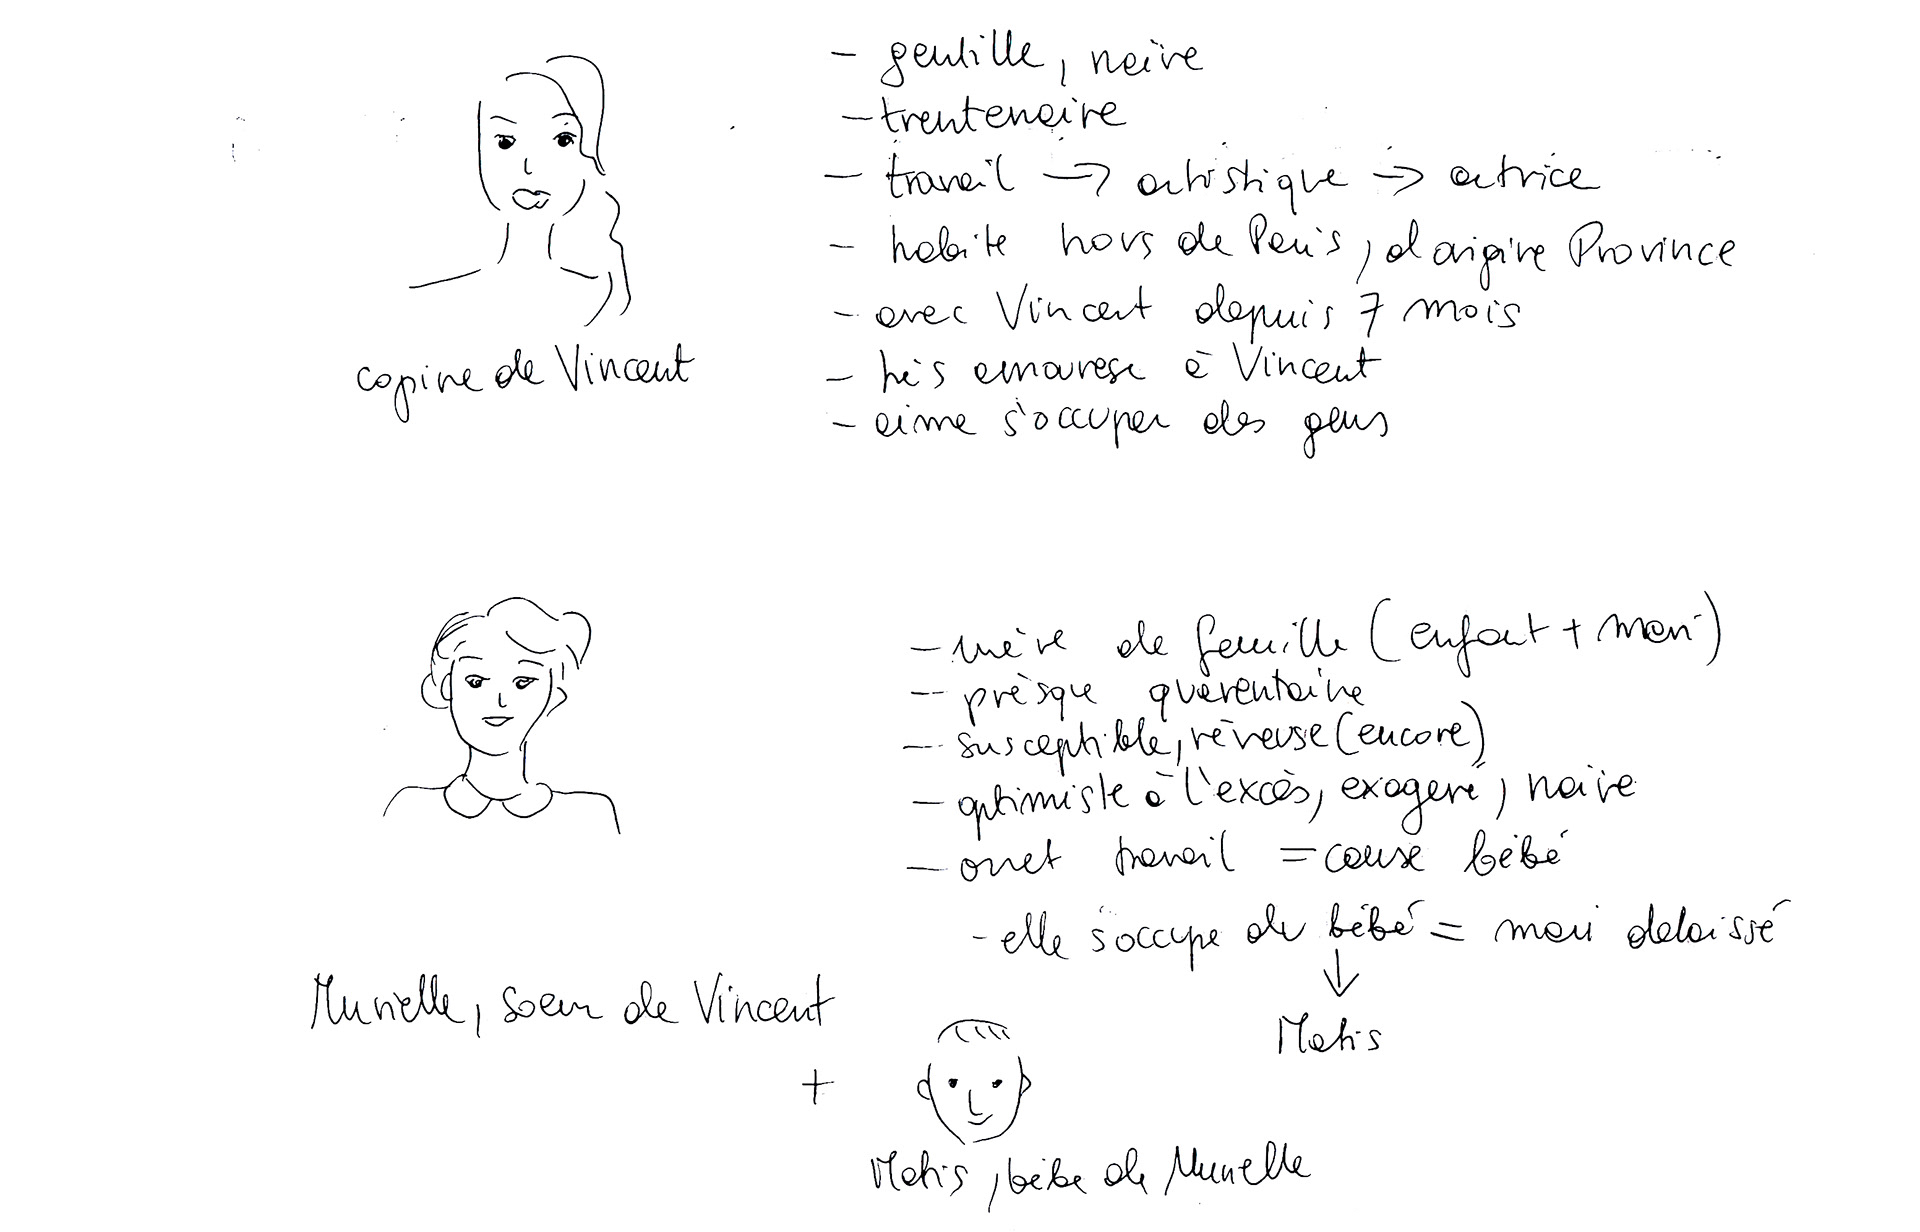 - gentille, naïve
- trentenaire
- travail → artistique → actrice
- habite hors de Paris, d'origine Province
- avec Vincent depuis 7 mois
- très amourese à Vincent
- aime s'occuper des gens
copine de Vincent
- mère de famille (enfant + mari)
- prèsque quarentaine
- susceptible, rêveuse (encore)
- optimiste à l'excès, exageré, naïve
- arret travail = cause bébé
- elle s'occupe du bébé = mari delaissé
↓
Matis
Murielle, soeur de Vincent
+
Matis, bébé de Murielle